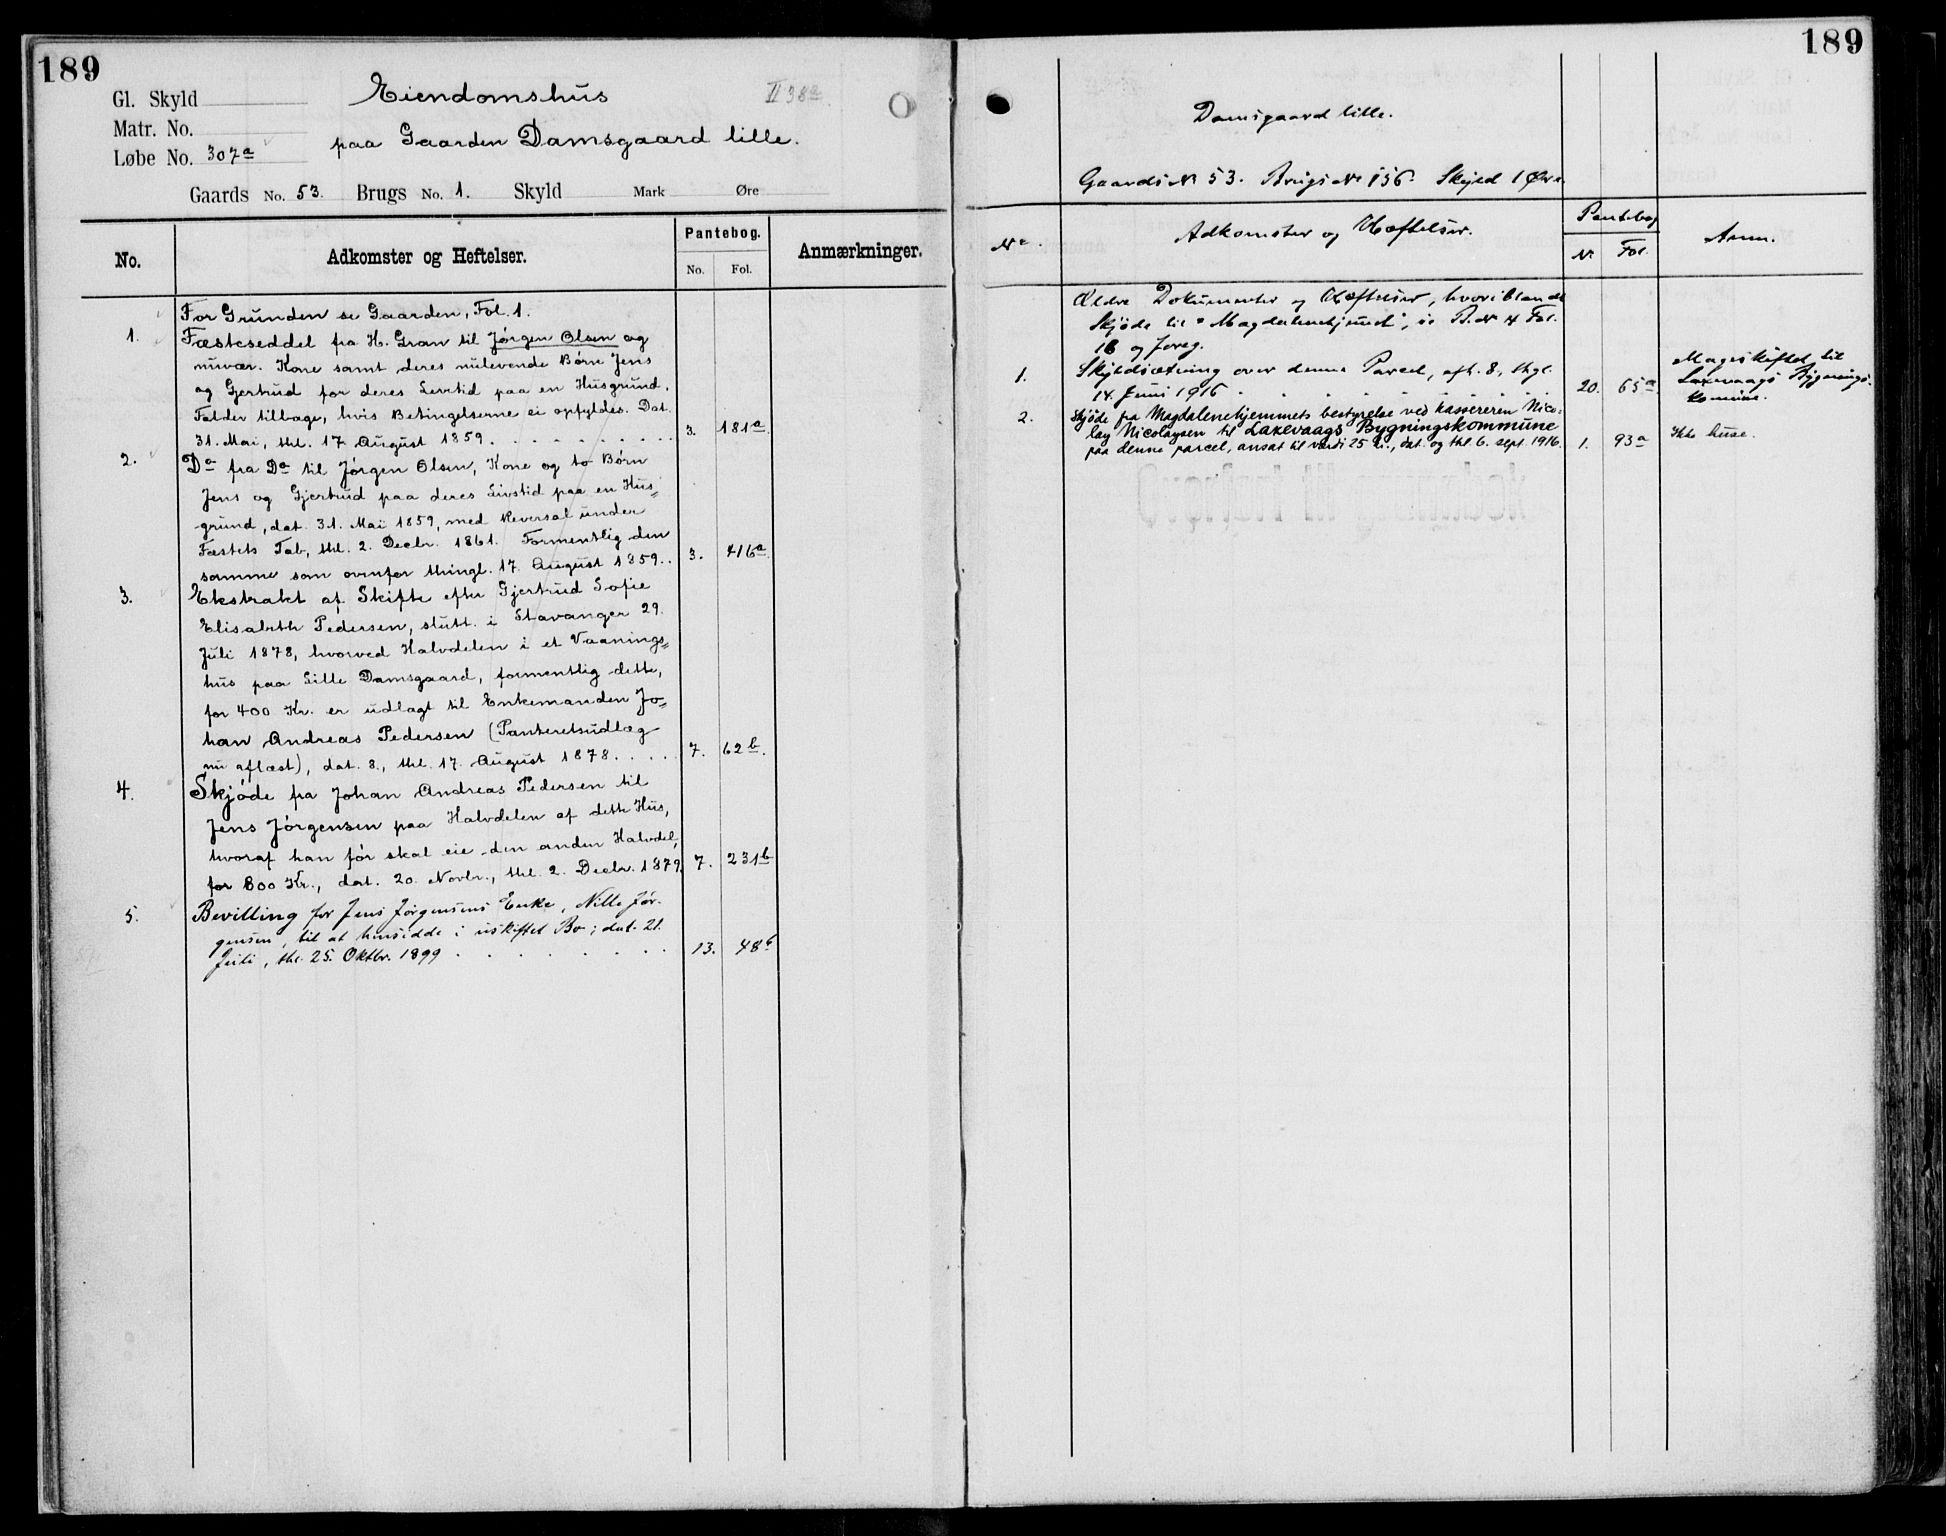 189
Gl. Skyld
Eiendomshus
II 38a
Matr. No.
Løbe No. 307a
paa Gaarden Damsgaard lille.
Gaards No. 53. Brugs No. 1. Skyld Mark Øre
No. Adkomster og Heftelser. Pantebog. Anmærkninger.
No. Fol.
For Grunden se Gaarden, Fol. 1.
1. Fæsteseddel fra H. Gran til Jørgen Olsen og
nuvær. Kone samt deres nulevende Børn Jens
og Gjertrud for deres Levetid paa en Husgrund.
Falder tilbage, hvis Betingelserne ei opfyldes. Dat.
31. Mai, thl. 17. August 1859. 3. 181a
2. Do fra Do til Jørgen Olsen, Kone og to Børn
Jens og Gjertrud paa deres Livstid paa en Hus=
grund, dat. 31. Mai 1859, med Reversal under
Fæstets Tab, thl. 2. Decbr. 1861. Formentlig den
samme som ovenfor thingl. 17. August 1859.. 3. 416a
3. Ekstrakt af Skifte efter Gjertrud Sofie
Elisabeth Pedersen, slutt. i Stavanger 29.
Juli 1878, hvorved Halvdelen i et Vaanings=
hus paa Lille Damsgaard, formentlig dette,
for 400 Kr. er udlagt til Enkemanden Jo=
han Andreas Pedersen (Panteretsudlæg
nu aflæst), dat. 8., thl. 17. August 1878. . . . . 7. 62b.
4. Skjøde fra Johan Andreas Pedersen til
Jens Jørgensen paa Halvdelen af dette Hus,
hvoraf han før skal eie den anden Halvdel,
for 800 Kr., dat. 20. Novbr., thl. 2. Decbr. 1879. 7. 231b
5. Bevilling for Jens Jørgensens Enke, Nille Jør-
gensen, til at hensidde i uskiftet Bo; dat. 21.
Juli, thl. 25. Oktbr. 1899 . . . . . . . 13. 48b
189
Damsgaard lille.
Gaards No 53. Brugs No 156. Skyld 1 Øre.
No. Adkomster og Hæftelser. Pantebog Anm.
No Fol.
Ældre Dokumenter og Hæftelser, hvoriblandt
Skjøde til "Magdalenehjemmet", se B. No 4 Fol.
16 og foreg.
1. Skyldsætning over denne Parcel, afh. 8., thgl.
14. Juni 1916 . . . . . . 20. 65a.
Mageskiftet til
Laxevaags Bygnings-
komune.
2. Skjøde fra Magdalenehjemmets bestyrelse ved kassereren Nico-
lay Nicolaysen til Laxevaags Bygningskommune
paa denne parcel, ansat til værdi 25 kr., dat. og thl. 6. sept. 1916. 1. 93a
Ikke huse.